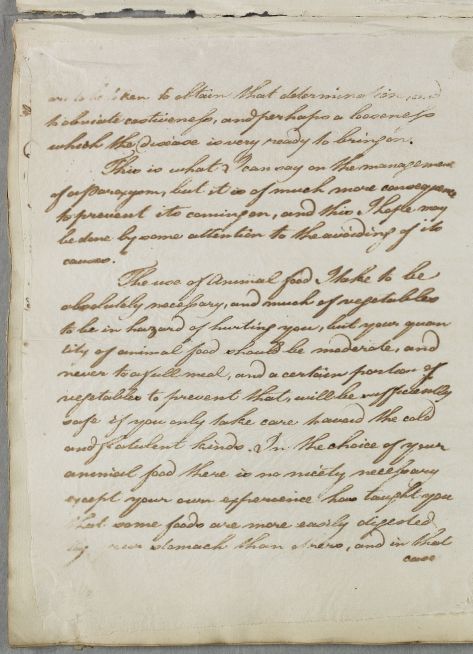 are to be taken to obtain that determination, and
to obviate costiveness, and perhaps a looseness
which the disease is very ready to bring on.
This is what I can say on the management
of a paroxysm, but it is of much more consequence
to prevent its coming on, and this I hope may
be done by some attention to the avoiding of its
causes.
The use of Animal food I take to be
absolutely necessary, and much of vegetables
to be in hazard of hurting you, but your quan
tity of animal food should be moderate, and
never to a full meal, and a certain portion of
vegetables to prevent that, will be sufficiently
safe if you only take care to avoid the cold
and flatulent kinds. In the choice of your
animal food there is no nicety necessary
except your own experience has taught you
that some foods are more easily digested
by your stomach than others, and in that
case